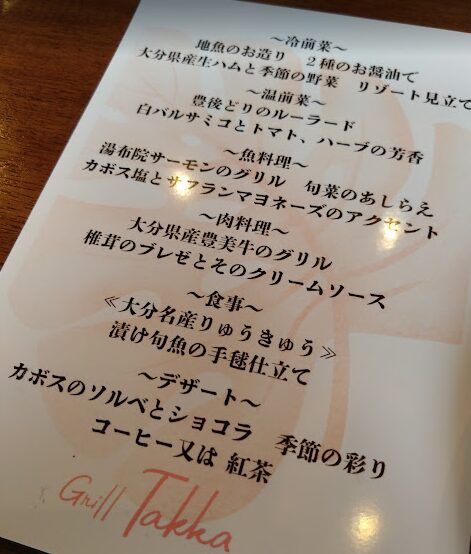 ～冷前菜～
地魚のお造り　2種のお醤油で
大分県産生ハムと季節の野菜　リゾート見立て
～温前菜～
豊後どりのルーラード
白バルサミコとトマト、ハーブの芳香
～魚料理～
湯布院サーモンのグリル　旬菜のあしらえ
カボス塩とサフランマヨネーズのアクセント
～肉料理～
大分県産豊美牛のグリル
椎茸のブレゼとそのクリームソース
～食事～
≪大分名産りゅうきゅう≫
漬け旬魚の手毬仕立て
～デザート～
カボスのソルベとショコラ　季節の彩り
コーヒー又は 紅茶
Grill Takka